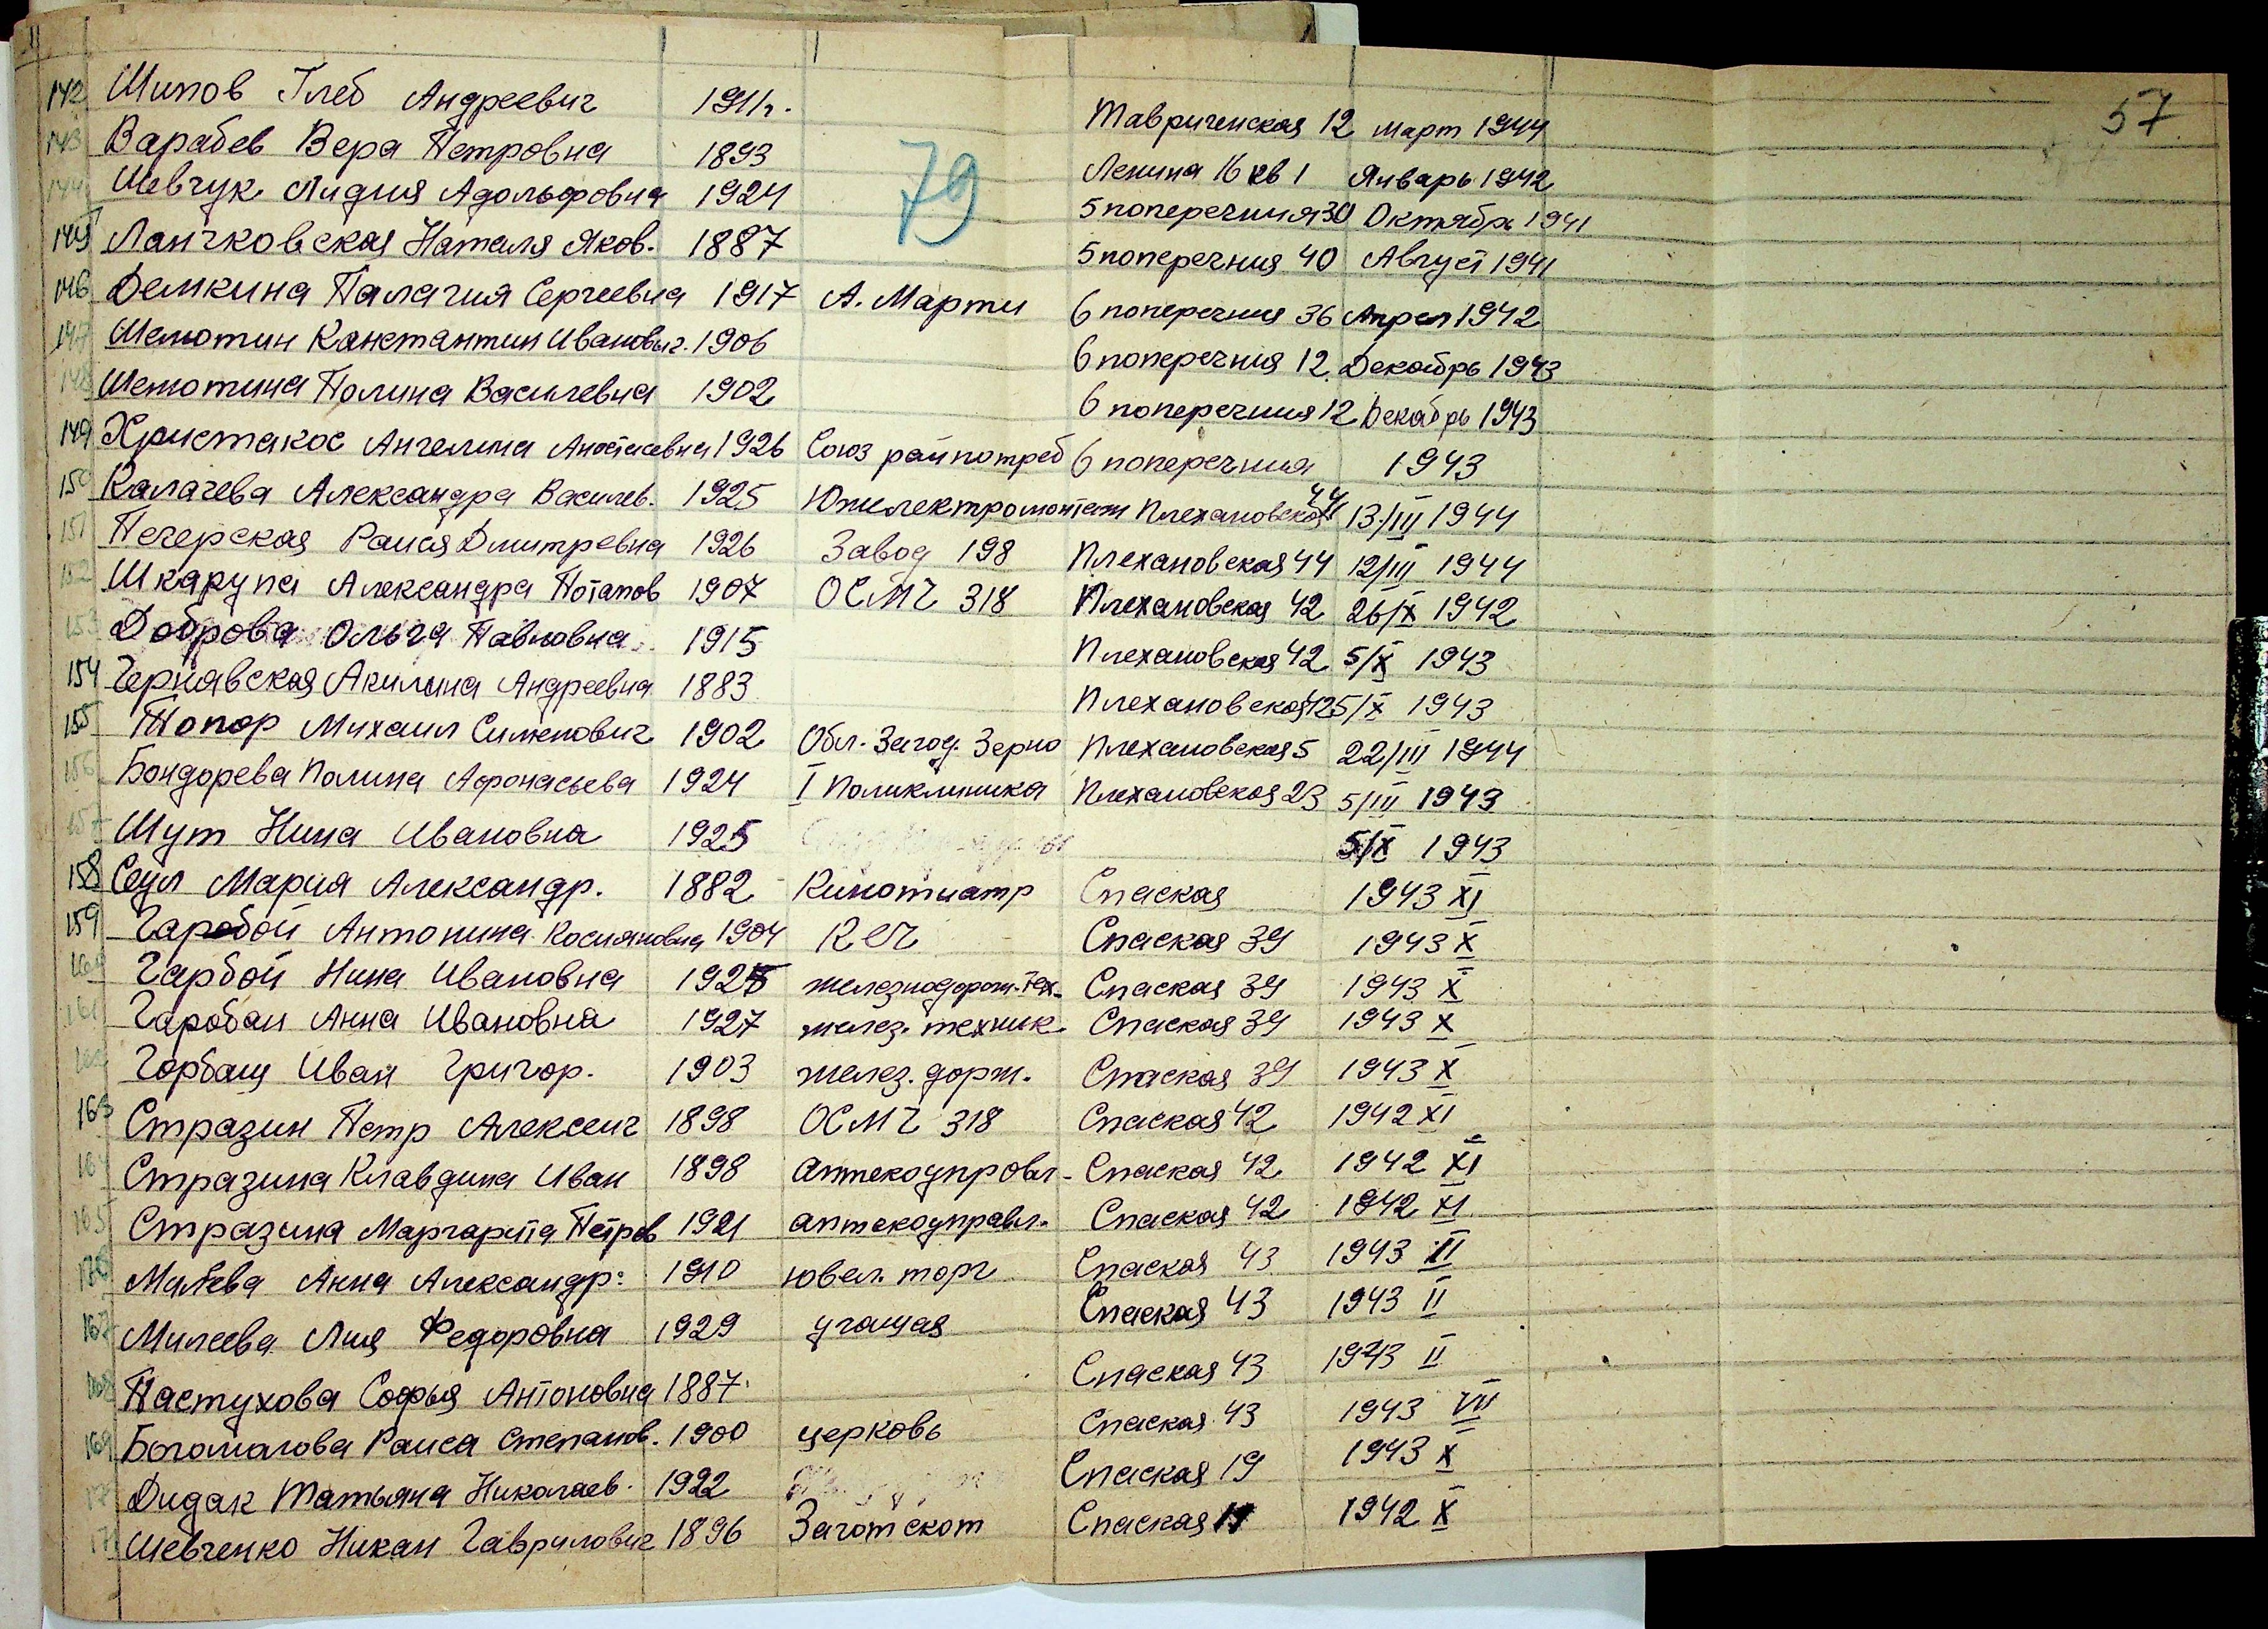 57
79
142 Шипов Глеб Андреевич 1911г. Тавриченская 12 март 1944
143 Варабев Вера Петровна 1893 Ленина 16 кв 1 Январь 1942
144 Шевчук Лидия Адольфовна 1924 5 поперечния 30 Октябрь 1941
145 Ланчковская Наталя Яков. 1887 5 поперечния 40 Август 1941
146 Демкина Палагия Сергеевна 1917 А. Марти 6 поперечния 36 Апрел 1942
147 Шемотин Канстантин Иванович. 1906 6 поперечния 12 Декабрь 1943
148 Шемотина Полина Василевна 1902 6 поперечния 12 Декабрь 1943
149 Христакос Ангелина Анастасевна 1926 Союз райпотреб 6 поперечния 1943
150 Калачева Александра Василев. 1925 Южелектромонтаж Плехановская 44 13/III 1944
151 Печерская Раиса Дмитревна 1926 Завод 198 Плехановская 44 12/III 1944
152 Шкарупа Александра Потапов 1907 ОСМЧ 318 Плехановская 42 26/X 1942
153 Доброва Ольга Павловна. 1915 Плехановская 42 5/X 1943
154 Чернавская Акилина Андреевна 1883 Плехановская 42 5/X 1943
155 Топор Михаил Сименович 1902 Обл. Загод. Зерно Плехановская 5 22/III 1944
156 Бондорева Полина Афонасьева 1924 I Поликлиника Плехановская 23 5/III 1943
157 Шут Нина Ивановна 1925 5/X 1943
158 Сеул Мария Александр. 1882 Кинотиатр Спаская 1943 XI
159 Гарбой Антонина Косияновна 1904 КЕЧ Спаская 39 1943 X
160 Гарбой Нина Ивановна 1925 железнодорож. тех. Спаская 39 1943 X
161 Гаробай Анна Ивановна 1927 желез. техник. Спаская 39 1943 X
162 Горбащ Иван Григор. 1903 желез. дорж. Спаская 39 1943 X
163 Стразин Петр Алексеич 1898 ОСМЧ 318 Спаская 42 1942 XI
164 Стразина Клавдина Иван 1898 Аптекоупровл- Спаская 42 1942 XI
165 Стразина Маргарита Петров 1921 аптекоуправл. Спаская 42 1942 XI
Анна Александр: 1910 ювел. торг Спаская 43 1943 II
167 Милеева Лия Федоровна 1929 учащая Спаская 43 1943 II
168 Пастухова Софья Антоновна 1887 Спаская 43 1943 II
169 Богомагова Раиса Степанов. 1900 церковь Спаская 43 1943 VII
170 Дидак Татьяна Николаев. 1922 Спаская 19 1943 X
171 Шевченко Никан Гаврилович 1896 Заготскот Спаская 1942 X